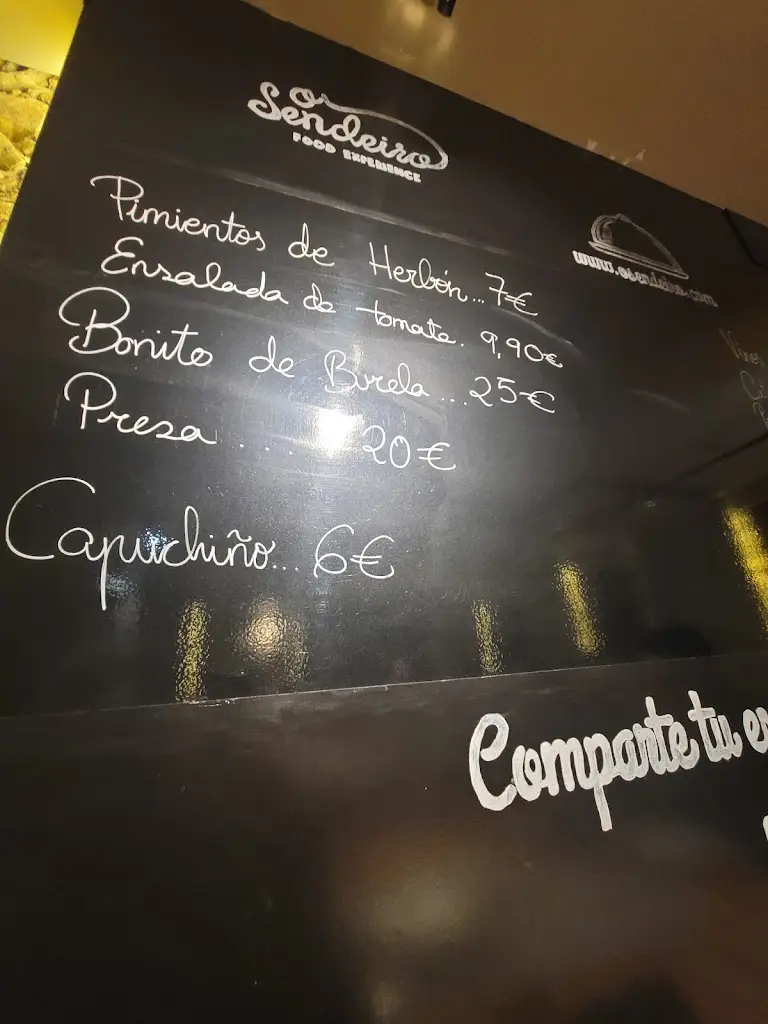 O Sendeiro
FOOD EXPERIENCE
Pimientos de Herbón... 7€
Ensalada de tomate. 9,90€
Bonito de Burela ... 25€
Presa .... 20€
Capuchiño... 6€
www.osendeiro.com
Comparte tu